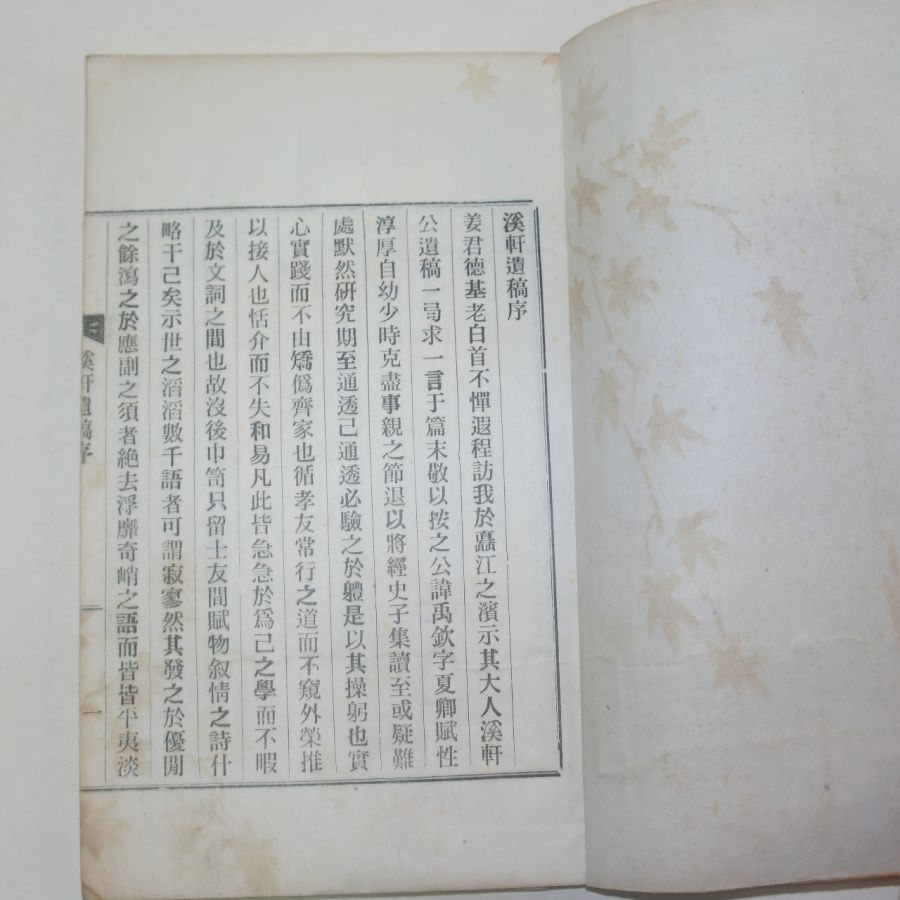 溪軒遺稿序
姜君德基老白首不憚遐程訪我於藠江之濱示其大人溪軒
公遺稿一局求一言于篇末敬以按之公諱禹欽字夏卿賦性
淳厚自幼少時克盡事親之節退以將經史子集讀至或疑難
處默然硏究期至通透己通透必驗之於軆是以其操躬也實
心實踐而不由矯僞齊家也循孝友常行之道而不窺外榮推
以接人也恬介而不失和易凡此皆急急於爲己之學而不暇
及於文詞之間也故沒後巾笥只留士友間賦物叙情之詩什
略干己矣示世之滔滔數千語者可謂寂寥然其發之於優閒
之餘瀉之於應副之須者絶去浮靡奇峭之語而皆皆平夷淡
溪軒遺稿序
一